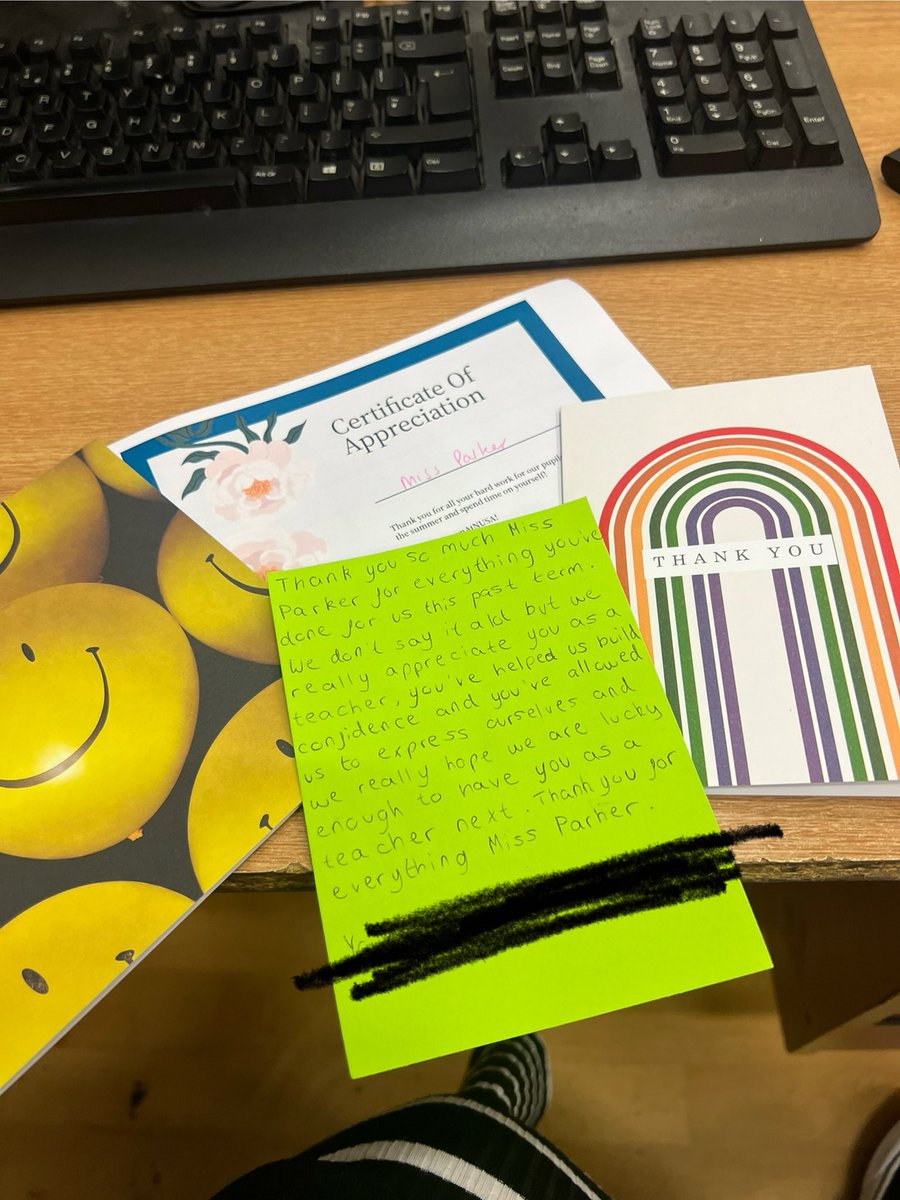 Certificate Of
Appreciation
Miss Parker
Thank you for all your hard work for our pupil
the summer and spend time on yourself!
THANK YOU
Thank you so much Miss
Parker for everything you've
done for us this past term.
We don't say it alot but we
really appreciate you as a
teacher, you've helped us build
confidence and you've allowed
us to express ourselves and
we really hope we are lucky
enough to have you as a
teacher next. Thank you for
everything Miss Parker.